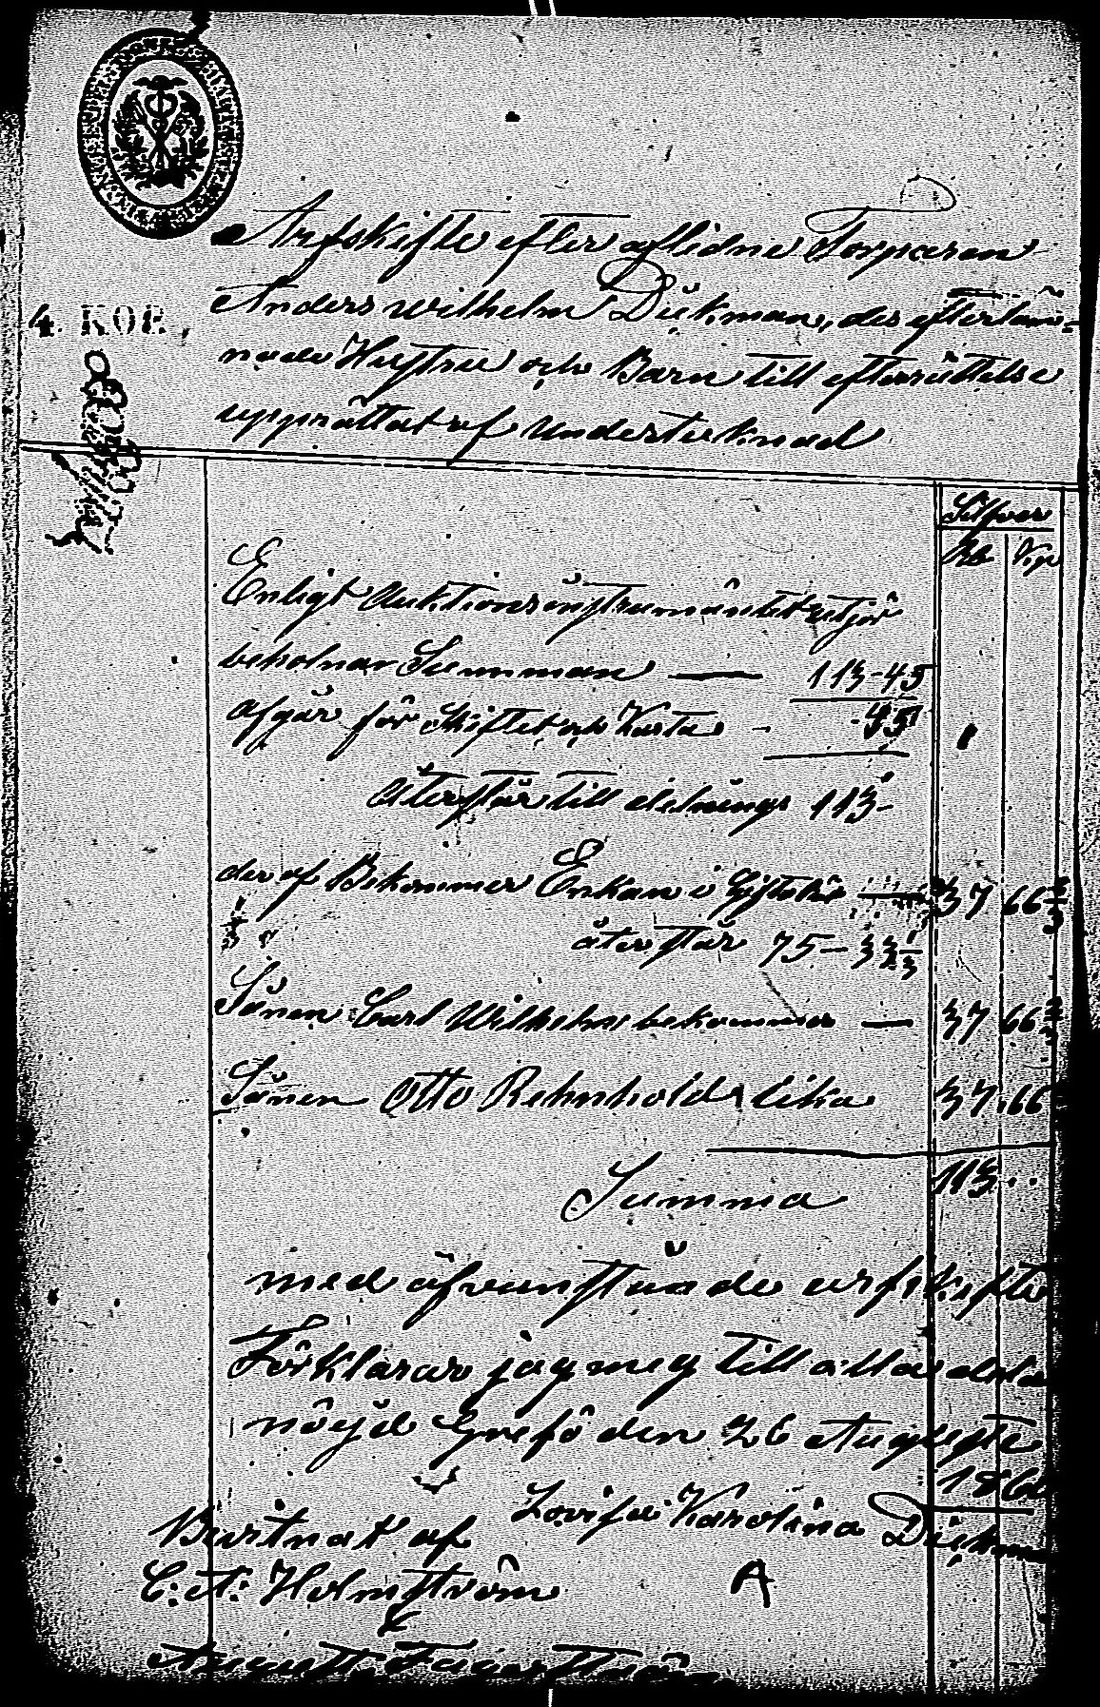 4. KOP.
Arfskifte efter aflidne Torparen
Anders Wilhelm Dickman, des efterläm-
nade Hustru och Barn till efterrättelse
upprättat af undertecknad
Silfver
Rb. Kop
Enligt Auktionsinstrumäntet utgör
beholnar Summan — 113-45
afgår för Skiftet och Karta - -45
Återstår till delning 113-
der af Bekommer Enkan i Giftorätt — 37 66 2/3
1/3 återstår 75-33 1/3
Sönen Carl Wilhelm bekommer — 37 66 2/3
Sönen Otto Rehnhold lika 37.66
Summa 113..
med åfvanstående arfskifte
Förklarar jag mig till alla dela
nöijd den 26 Augusti
Lovisa Karolina Dickman
Vittnat af
C: A: Holmström
August